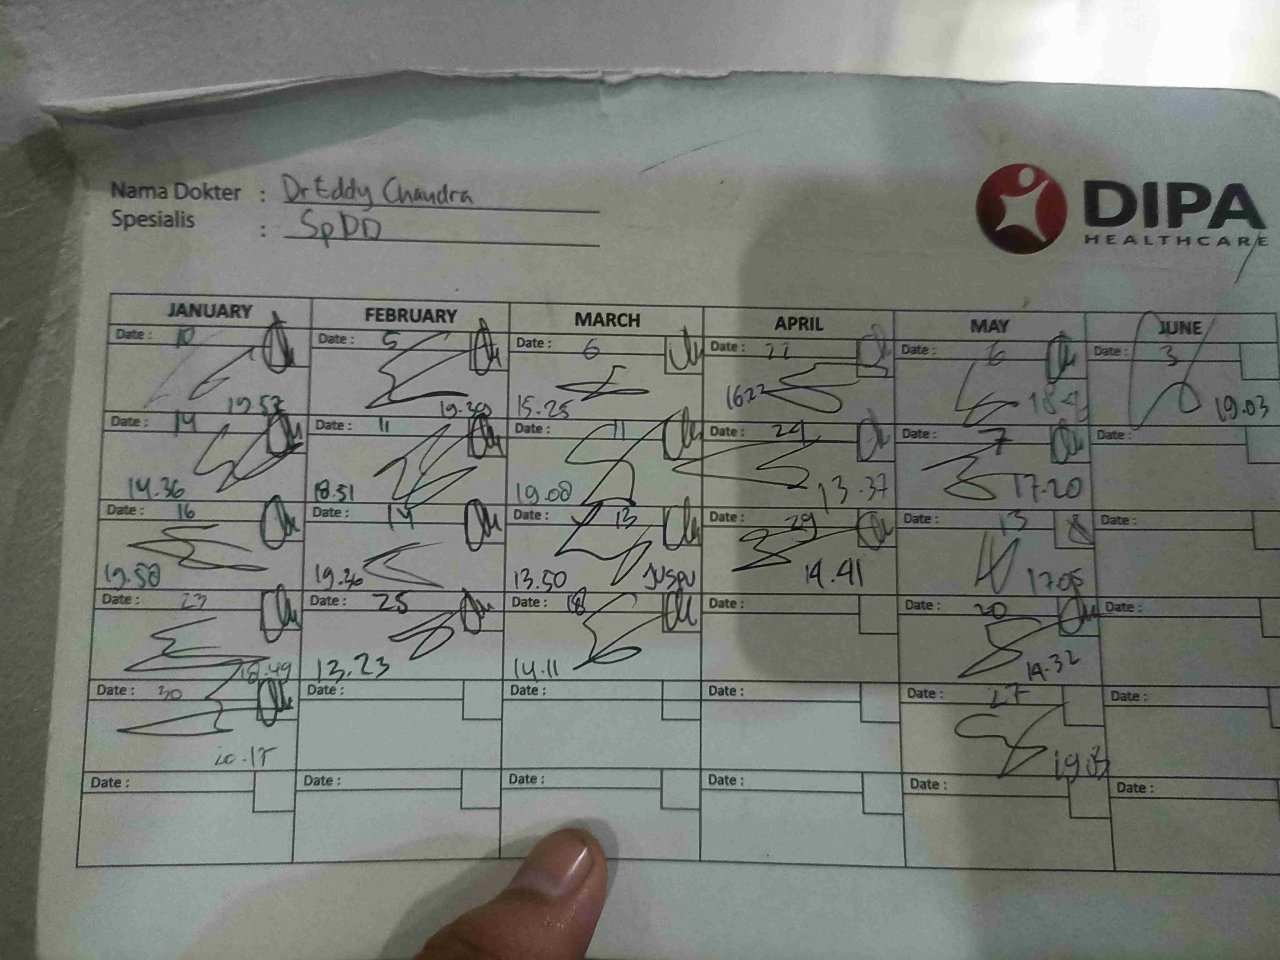 Nama Dokter : Dr Eddy Chandra
Spesialis : SpDD
DIPA
HEALTHCARE
JANUARY FEBRUARY MARCH APRIL MAY JUNE
Date : 10 Date : 5 Date : 6 Date : 22 Date : 6 Date : 3
19.57 15.25 1622 19.03
Date : 14 Date : 11 Date : 11 Date : 24 Date : 7 Date :
14.36 18.51 19.08 13.37 17.20
Date : 16 Date : 14 Date : 13 Date : 29 Date : 13 Date :
19.58 19.36 13.50 14.41 17.05
Date : 23 Date : 25 Date : 18 Date : Date : 20 Date :
18.49 13.23 14.11 14.32
Date : 30 Date : Date : Date : Date : 27 Date :
19.03
Date : Date : Date : Date : Date : Date :